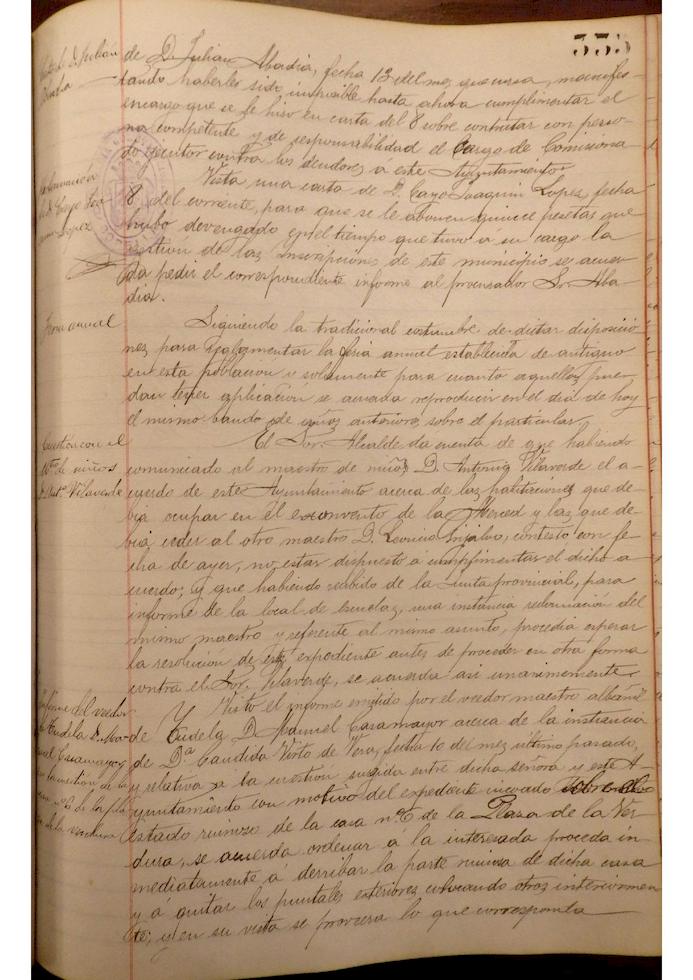 333
de D. Julian Abadia, fecha 13 del mes que cursa, manifes-
tando haberle sido imposible hasta ahora cumplimentar el
encargo que se le hiso en carta del 8 sobre contratar con perso-
na competente y de responsabilidad el cargo de Comisiona-
do ejecutor contra los deudores á este Ayuntamiento.
Reclamacion
de D. Cayo Joa-
quin Lopez
Vista una carta de D. Cayo Joaquin Lopez, fecha
8 del corriente, para que se le abonen quince pesetas que
hubo devengado en el tiempo que tuvo á su cargo la
gestion de las inscripciones de este municipio se acuer-
da pedir el correspondiente informe al procurador Sr. Aba-
dia.
Feria anual
Siguiendo la tradicional costumbre de dictar disposicio-
nes para reglamentar la feria anual establecida de antiguo
en esta poblacion y solamente para cuanto aquellas pue-
dan tener aplicacion se acuerda reproducir en el dia de hoy
el mismo bando de años anteriores sobre el particular.
Cuestion con el
Mtro de niños
D. Anto Vilaverde
El Sor. Alcalde da cuenta de que habiendo
comunicado al maestro de niños D. Antonio Vilaverde el a-
cuerdo de este Ayuntamiento acerca de las habitaciones que de-
bia ocupar en el exconvento de la Merced y las que de-
bia ceder al otro maestro D. Leoncio Grijalvo, contestó con fe-
cha de ayer, no estar dispuesto á cumplimentar el dicho a-
cuerdo; y que habiendo recibido de la Junta provincial, para
informe de la local de escuelas, una instancia reclamación del
mismo maestro y referente al mismo asunto, procedia esperar
la resolución de este expediente antes de proceder en otra forma
contra el Sor. Vilaverde, se acuerda asi unanimemente.
Informe del veedor
de Tudela D. Ma-
nuel Casamayor
en la cuestion de la
casa nº 6 de la pla
za de la verdura
Y Visto el informe emitido por el veedor maestro albañil
de Tudela D. Manuel Casamayor acerca de la instancia
de Dª Candida Visto de Vera, fecha 10 del mes último pasado,
y relativa á la cuestión surgida entre dicha señora y este A-
yuntamiento con motivo del expediente incoado sobre el
estado ruinoso de la casa nº 6 de la Plaza de la Ver-
dura, se acuerda ordenar á la interesada proceda in-
mediatamente á derribar la parte ruinosa de dicha casa
y á quitar los puntales exteriores colocando otros interiormen
te; y en su vista se proveera lo que corresponda